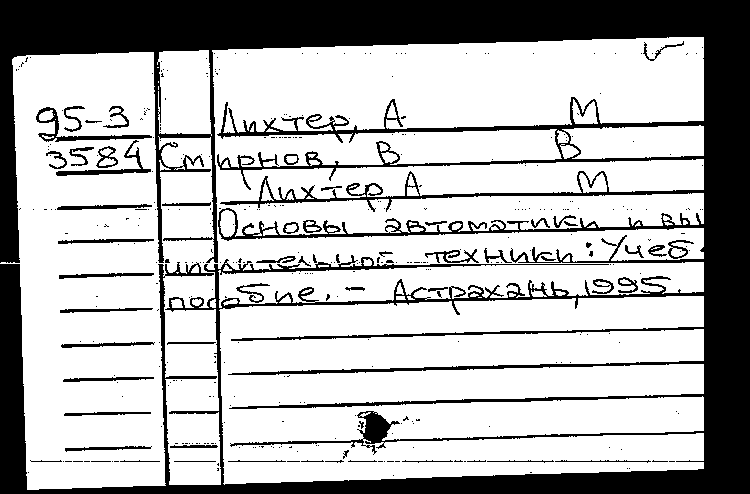 95-3 Лихтер, А М
3584 Смирнов, В В
Лихтер, А М
Основы автоматики и вы
числительной техники: Учеб.
пособие. - Астрахань, 1995.